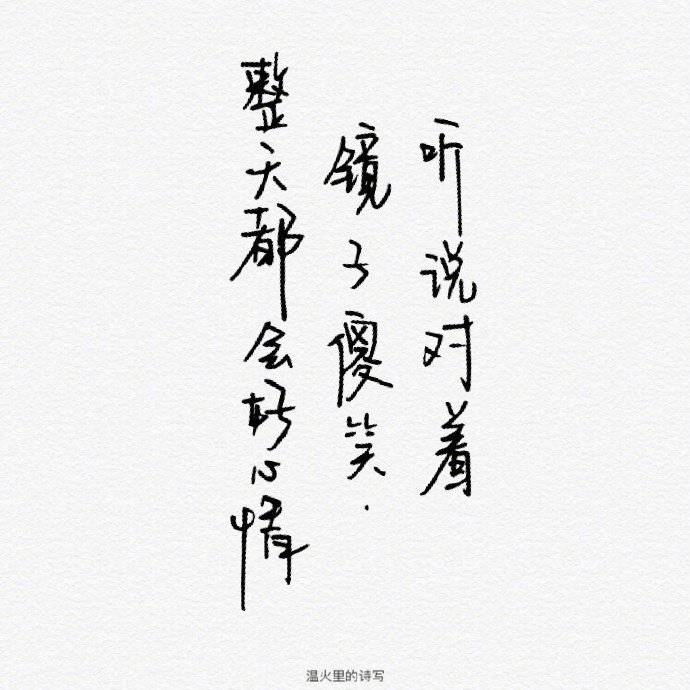 听说对着
镜子傻笑.
整天都会好心情
温火里的诗写